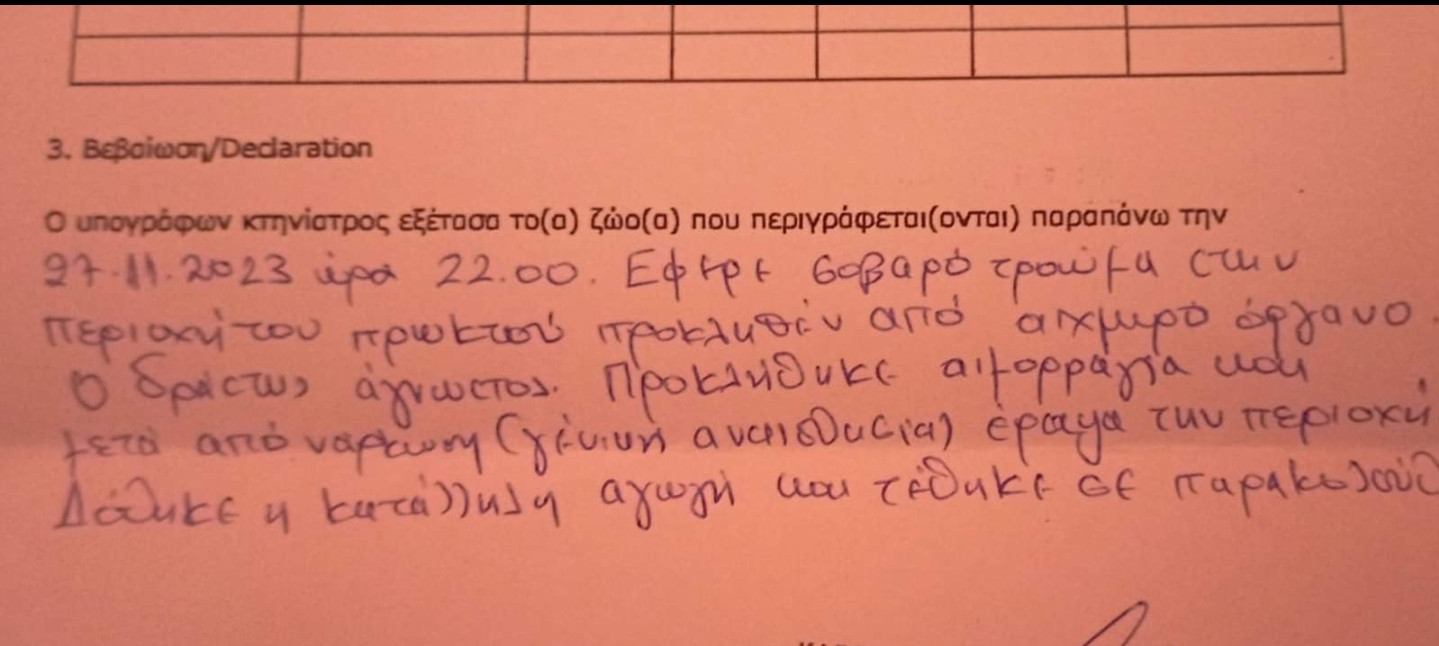 3. Βεβαίωση/Declaration
Ο υπογράφων κτηνίατρος εξέτασα το(α) ζώο(α) που περιγράφεται(ονται) παραπάνω την
27.11.2023 ώρα 22.00. Εφερε σοβαρό τραύμα στην
περιοχή του πρωκτού προκληθέν από αιχμηρό όργανο.
Ο δράστης άγνωστος. Προκλήθηκε αιμορραγία και
μετά από νάρκωση (γενική αναισθησία) έραψα την περιοχή
Δόθηκε η κατάλληλη αγωγή και τέθηκε σε παρακολούθ